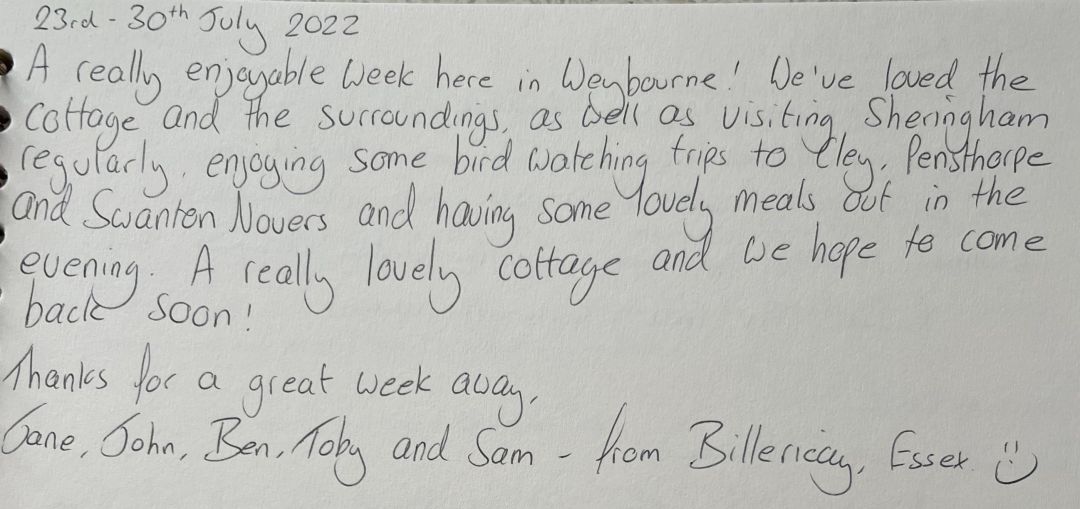 23rd - 30th July 2022
A really enjoyable week here in Weybourne! We've loved the
cottage and the surroundings, as well as visiting Sheringham
regularly, enjoying some bird watching trips to Cley, Pensthorpe
and Swanton Novers and having some lovely meals out in the
evening. A really lovely cottage and we hope to come
back soon!
Thanks for a great week away,
Jane, John, Ben, Toby and Sam - from Billericay, Essex. :)